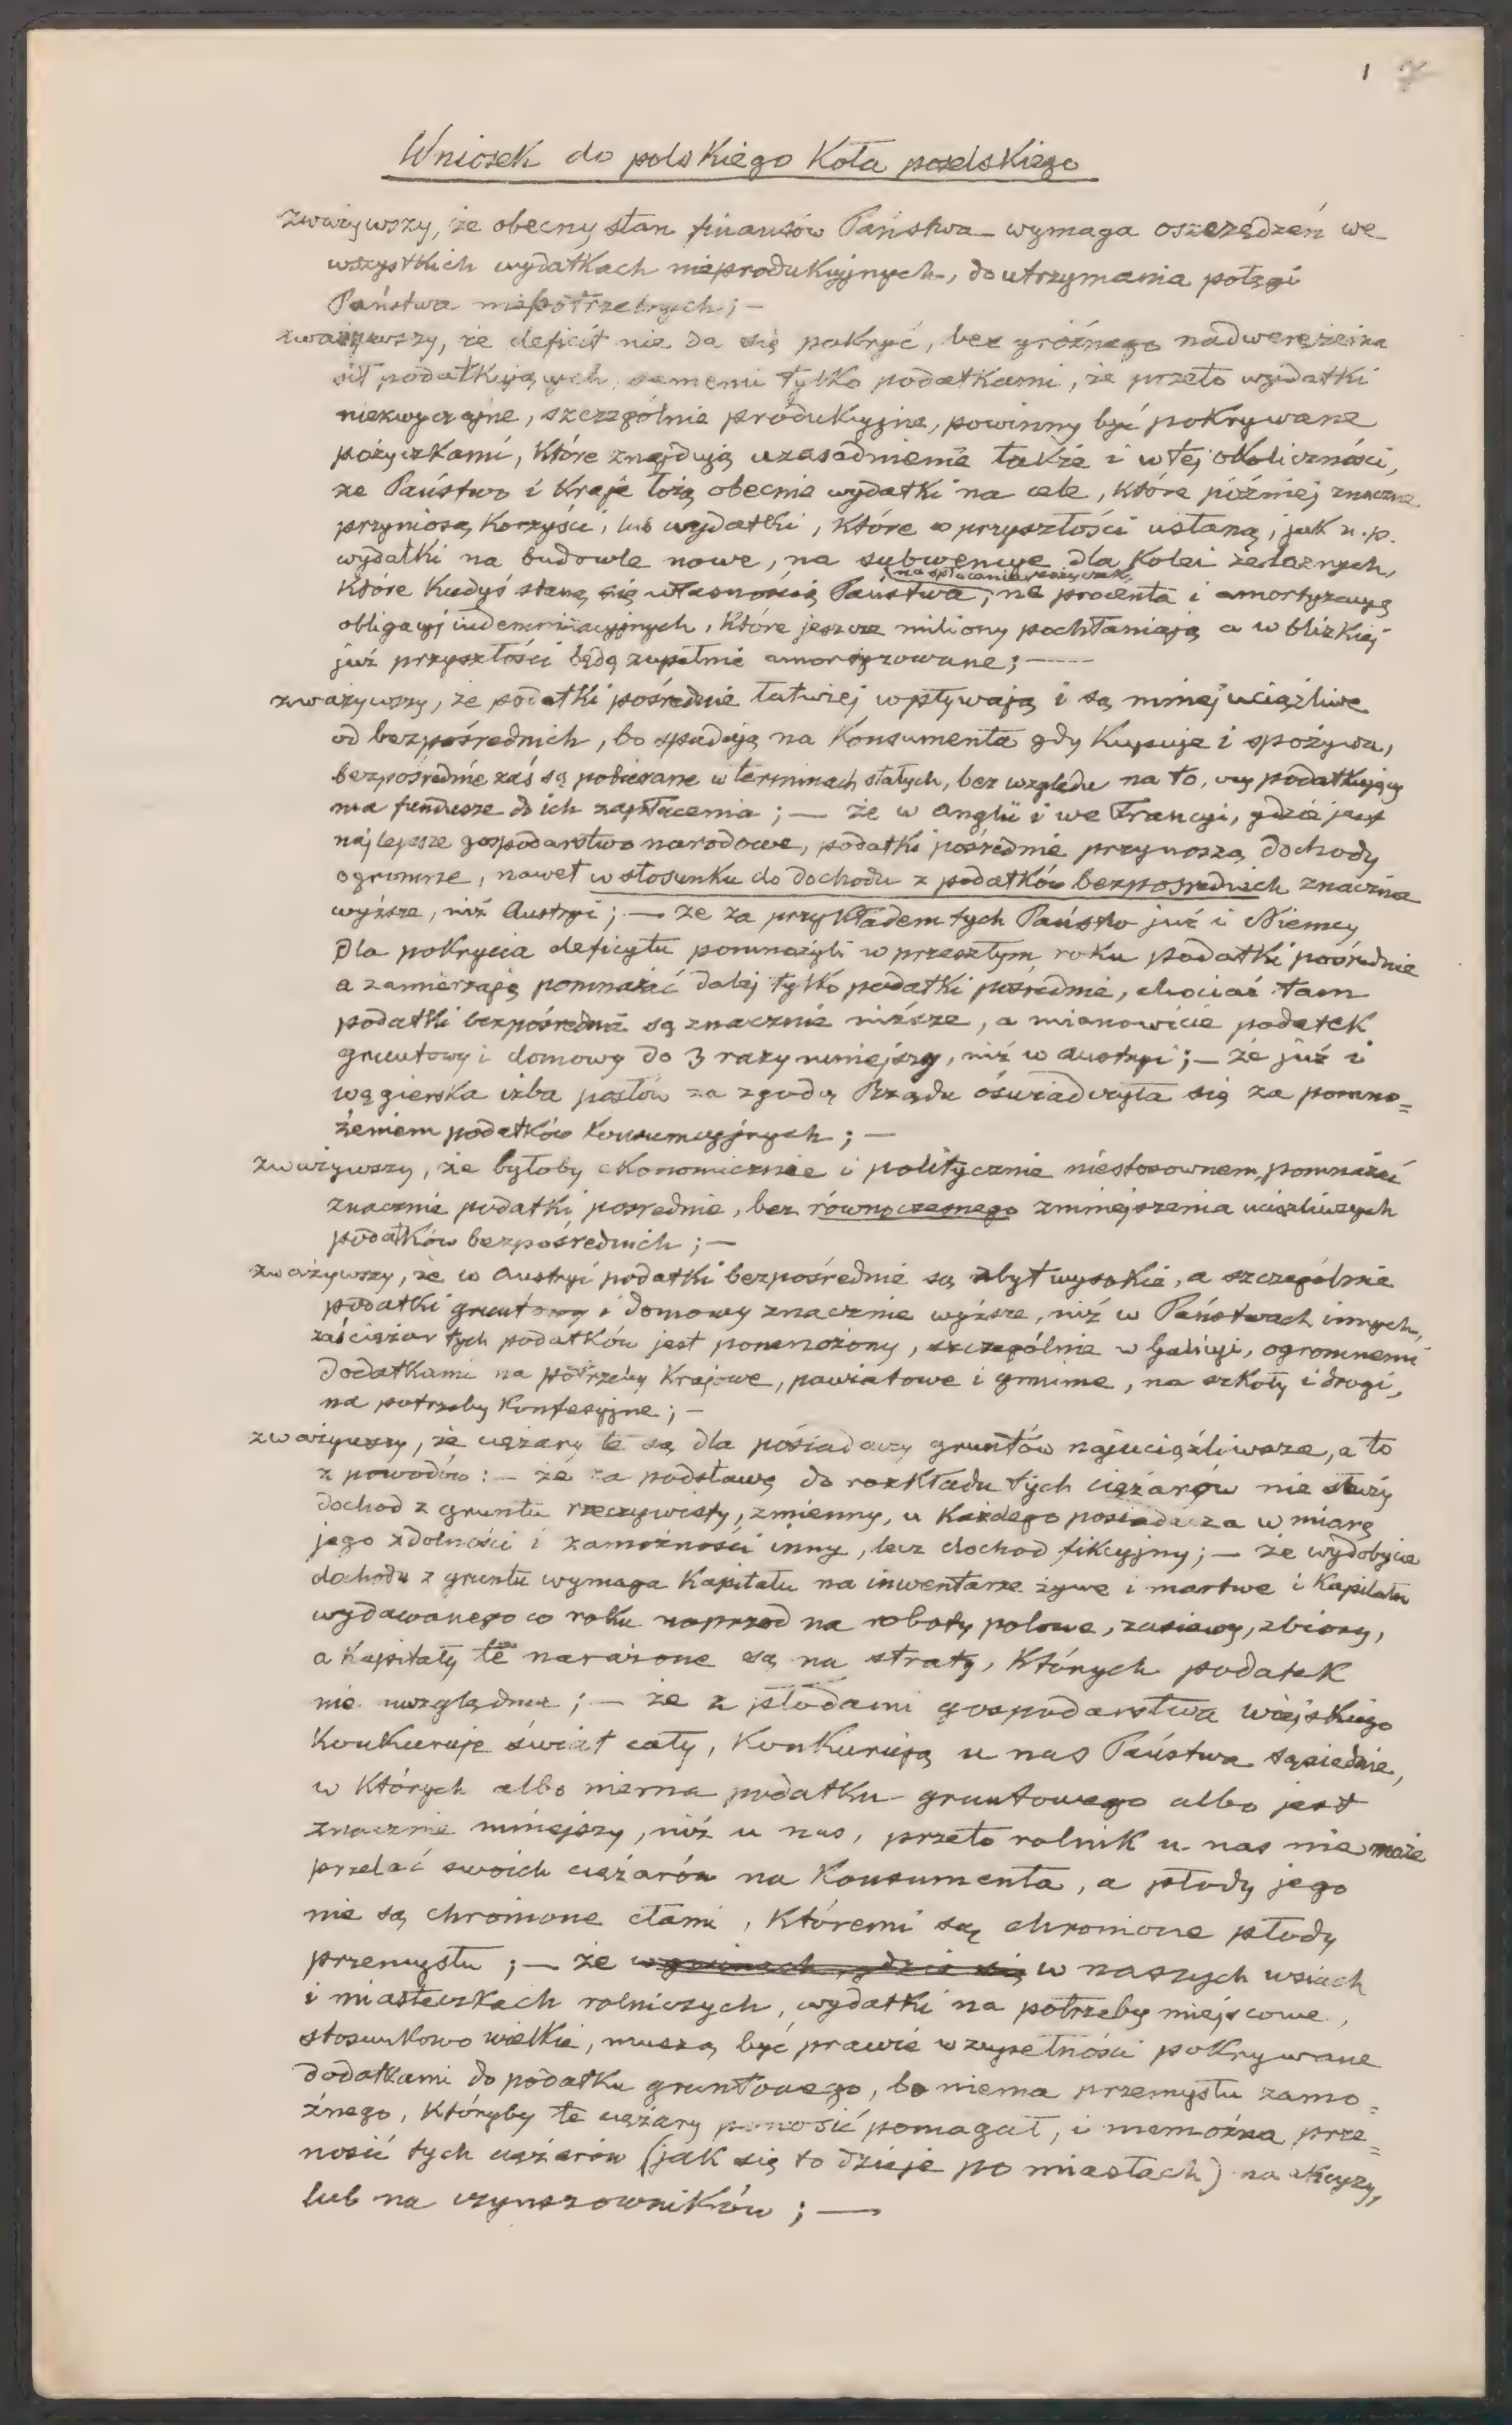 1
Wniosek do polskiego Koła poselskiego
zważywszy, że obecny stan finansów Państwa wymaga oszczędzeń we
wszystkich wydatkach nieprodukcyjnych, do utrzymania potęgi
Państwa niepotrzebnych; —
zważywszy, że deficit nie da się pokryć, bez gróźnego nadwerężenia
sił podatkujących, samemi tylko podatkami, że przeto wydatki
niezwyczajne, szczególnie produkcyjne, powinny być pokrywane
pożyczkami, które znajdują uzasadnienie także i w tej okoliczności,
że Państwo i Kraje łożą obecnie wydatki na cele, które później znaczne
przyniosą korzyści, lub wydatki, które w przyszłości ustaną, jak n.p.
wydatki na budowle nowe, na subwencye dla Kolei żelaznych,
na spłacanie pożyczek,
które kiedyś staną się własnością Państwa, na procenta i amortyzacyę
obligacyj indemnizacyjnych, które jeszcze miliony pochłaniają a w blizkiej
już przyszłości będą zupełnie amortyzowane; —
zważywszy, że podatki pośrednie łatwiej wpływają i są mniej uciążliwe
od bezpośrednich, bo spadają na Konsumenta gdy kupuje i spożywa,
bezpośrednie zaś są pobierane w terminach stałych, bez względu na to, czy podatkujący
ma fundusze do ich zapłacenia; — że w Anglii i we Francyi, gdzie jest
najlepsze gospodarstwo narodowe, podatki pośrednie przynoszą dochody
ogromne, nawet w stosunku do dochodu z podatków bezpośrednich znacznie
wyższe, niż Austryi; — że za przykładem tych Państw już i Niemcy
dla pokrycia deficytu pomnożyli w przeszłym roku podatki pośrednie
a zamierzają pomnażać dalej tylko podatki pośrednie, chociaż tam
podatki bezpośrednie są znacznie niższe, a mianowicie podatek
gruntowy i domowy do 3 razy mniejszy, niż w Austryi; — że już i
węgierska izba posłów za zgodą Rządu oświadczyła się za pomno=
żeniem podatków konsumcyjnych; —
zważywszy, że byłoby ekonomicznie i politycznie niestosownem, pomnażać
znacznie podatki pośrednie, bez równoczesnego zmniejszenia uciążliwszych
podatków bezpośrednich; —
zważywszy, że w Austryi podatki bezpośrednie są zbyt wysokie, a szczególnie
podatki gruntowy i domowy znacznie wyższe, niż w Państwach innych,
zaś ciężar tych podatków jest pomnożony, szczególnie w Galicyi, ogromnemi
dodatkami na potrzeby Krajowe, powiatowe i gminne, na szkoły i drogi,
na potrzeby konfesyjne; —
zważywszy, że ciężary te są dla posiadaczy gruntów najuciążliwsze, a to
z powodów: — że za podstawę do rozkładu tych ciężarów nie służy
dochód z gruntu rzeczywisty, zmienny, u każdego posiadacza w miarę
jego zdolności i zamożności inny, lecz dochod fikcyjny; — że wydobycie
dochodu z gruntu wymaga Kapitału na inwentarze żywe i martwe i Kapitału
wydawanego co roku naprzod na roboty polowe, zasiewy, zbiory,
a Kapitały te narażone są na straty, których podatek
nie uwzględnia; — że z płodami gospodarstwa wiejskiego
konkuruje świat cały, konkurują u nas Państwa sąsiednie,
w których albo niema podatku gruntowego albo jest
znacznie mniejszy, niż u nas, przeto rolnik u nas nie może
przelać swoich ciężarów na Konsumenta, a płody jego
nie są chronione cłami, któremi są chronione płody
przemysłu; — że w gminach, gdzie się w naszych wsiach
i miasteczkach rolniczych, wydatki na potrzeby miejscowe,
stosunkowo wielkie, muszą być prawie w zupełności pokrywane
dodatkami do podatku gruntowego, bo niema przemysłu zamo=
żnego, któryby te ciężary ponosić pomagał, i niemożna prze=
nosić tych ciężarów (jak się to dzieje po miastach) na akcyzy,
lub na czynszowników; —